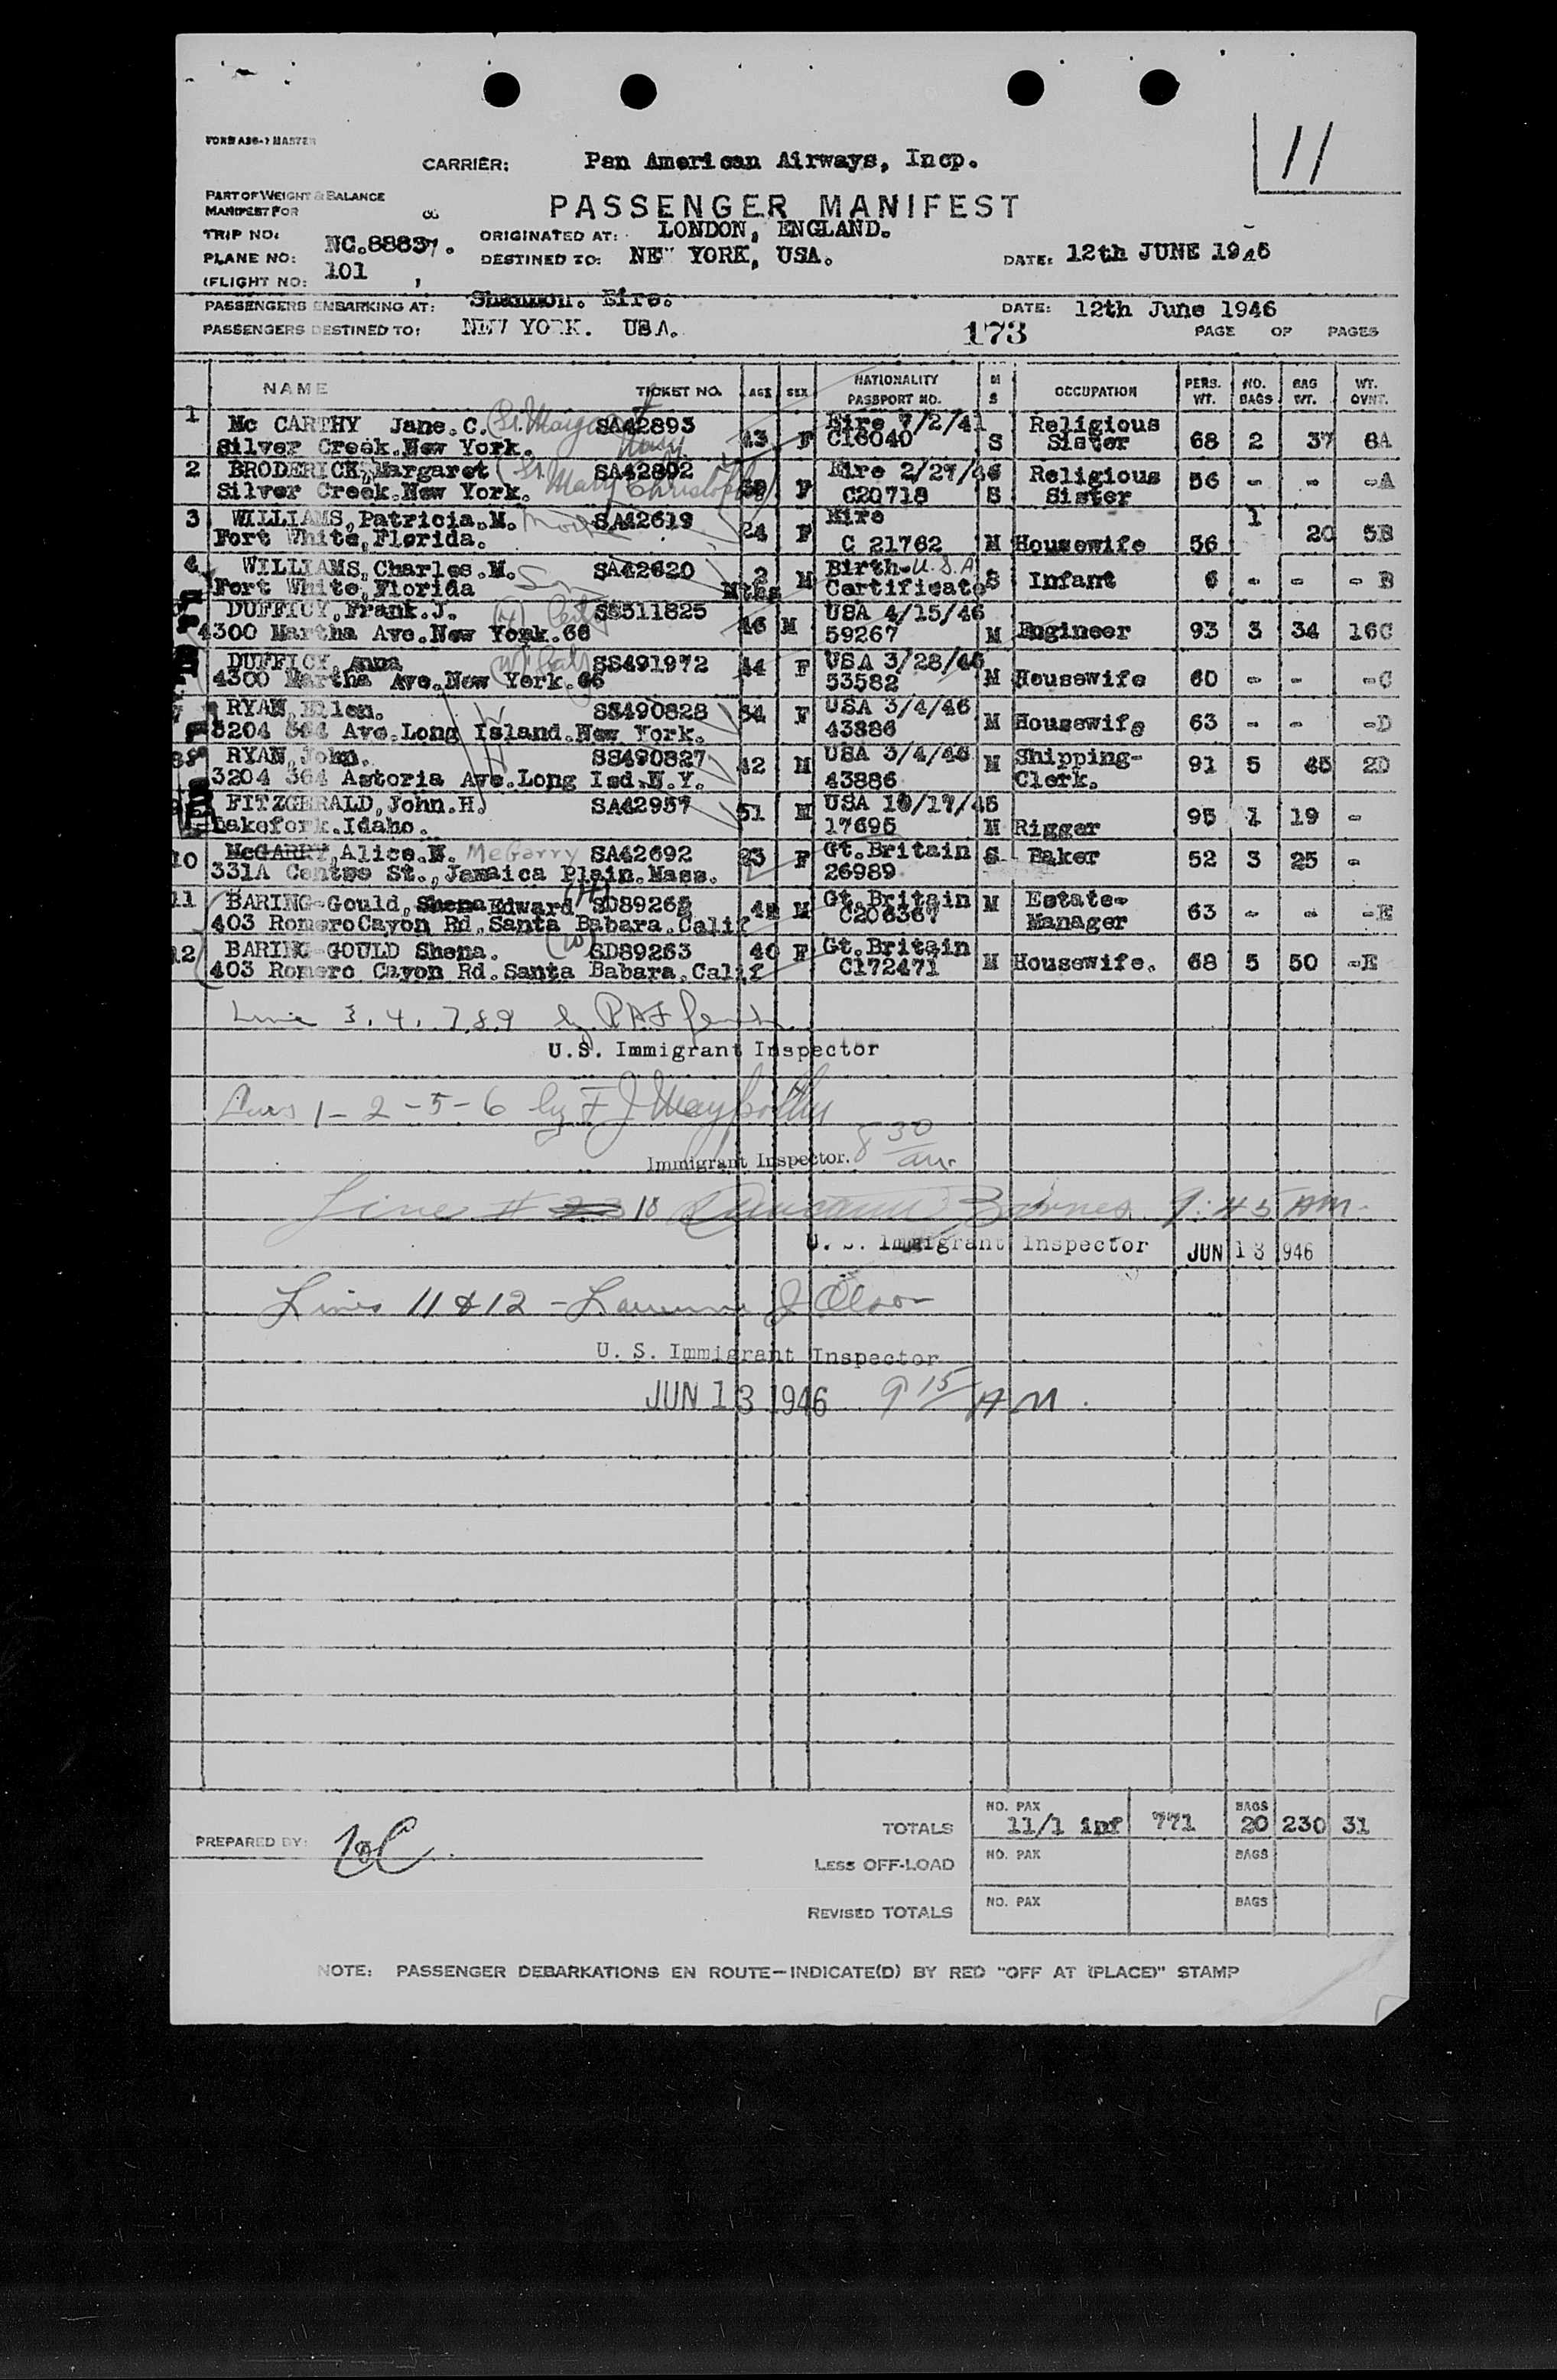 FORM A36-7 MASTER
11
CARRIER: Pan American Airways, Incp.
PART OF WEIGHT & BALANCE
MANIFEST FOR
PASSENGER MANIFEST
TRIP NO:
ORIGINATED AT: LONDON, ENGLAND.
PLANE NO: NC.88837.
DESTINED TO: NEW YORK, USA. DATE: 12th JUNE 1946
(FLIGHT NO: 101 ,
PASSENGERS EMBARKING AT: Shannon. Eire. DATE: 12th June 1946
PASSENGERS DESTINED TO: NEW YORK. USA. 173 PAGE OF PAGES
NAME TICKET NO. AGE SEX NATIONALITY PASSPORT NO. M S OCCUPATION PERS. WT. NO. BAGS BAG WT. WT. OVNT.
1 Mc CARTHY Jane.C. (Sr. Margaret Mary) SA42893 43 F Eire 7/2/41 Religious
Silver Creek.New York. C16040 S Sister 68 2 37 6A
2 BRODERICK, Margaret (Sr. Mary Christopher) SA42802 F Eire 2/27/46 Religious 56 - - -A
Silver Creek.New York. C20718 S Sister
3 WILLIAMS,Patricia.M. Mother SA42619 24 F Eire 1
Fort White,Florida. C 21762 M Housewife 56 20 5B
4 WILLIAMS,Charles.M. Son SA42620 2 M Birth- U.S.A.
Fort White,Florida Mths Certificate S Infant 6 - - - B
DUFFICY,Frank.J. (H) SS511825 46 M USA 4/15/46
4300 Martha Ave.New York.66 59267 M Engineer 93 3 34 16C
DUFFICY,Anna (W) SS491972 44 F USA 3/28/46
4300 Martha Ave.New York.66 53582 M Housewife 60 - - -C
7 RYAN,Ellen. SS490828 34 F USA 3/4/46
3204 Ave.Long Island.New York. 43886 M Housewife 63 - - -D
8 RYAN,John. SS490827 42 M USA 3/4/46 Shipping-
3204 364 Astoria Ave.Long Isd.N.Y. 43886 M Clerk. 91 5 45 2D
9 FITZGERALD,John.H. SA42957 51 M USA 10/17/45
Lakefork.Idaho. 17695 M Rigger 95 1 19 -
10 McGARRY,Alice.N. McGarry SA42692 23 F Gt.Britain S Baker 52 3 25 -
331A Centre St.,Jamaica Plain.Mass. 26989
11 BARING-Gould,Shena Edward (H) SD89265 M Gt.Britain M Estate-
403 Romero Cayon Rd,Santa Babara.Calif C206367 Manager 63 - - -E
12 BARING-GOULD Shena. (W) SD89263 40 F Gt.Britain
403 Romero Cayon Rd.Santa Babara.Calif C172471 M Housewife. 68 5 50 -E
Line 3.4.7.8.9 by
U.S. Immigrant Inspector
Lines 1-2-5-6 by F J
Immigrant Inspector. 8 30 am.
Line # 10 Barnes 9:45 AM.
U. S. Immigrant Inspector JUN 13 1946
Lines 11 & 12 - Lawrence J Olson
U. S. Immigrant Inspector
JUN 13 1946 9 15 AM.
NO. PAX BAGS
TOTALS 11/1 inf 771 20 230 31
PREPARED BY:
LESS OFF-LOAD NO. PAX BAGS
REVISED TOTALS NO. PAX BAGS
NOTE: PASSENGER DEBARKATIONS EN ROUTE—INDICATE(D) BY RED "OFF AT (PLACE)" STAMP